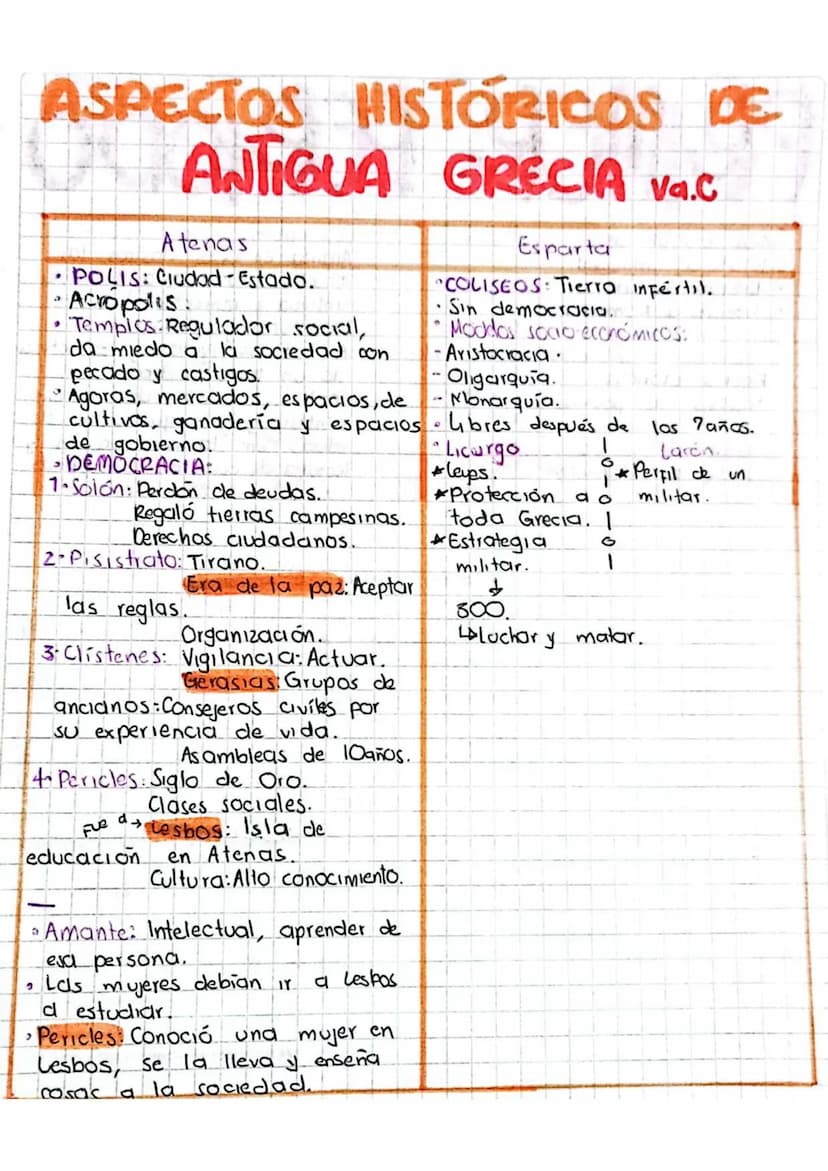 ASPECTOS HISTÓRICOS DE
ANTIGUA GRECIA Va.C
Atenas
• POLIS: Ciudad-Estado.
• Acropolis:
• Templos: Regulador social,
da miedo a la sociedad con
pecado y castigos.
• Agoras, mercados, espacios, de
cultivos, ganadería y espacios
de gobierno.
• DEMOCRACIA:
1• Solón: Perdón de deudas.
Regaló tierras campesinas.
Derechos ciudadanos.
2• Pisistrato: Tirano.
Era de la paz: Aceptar
las reglas.
Organización.
3• Clístenes: Vigilancia: Actuar.
Gerasias: Grupos de
ancianos: Consejeros civiles por
su experiencia de vida.
Asambleas de 10años.
4• Pericles: Siglo de Oro.
Clases sociales.
Fue a → Lesbos: Isla de
educación en Atenas.
Cultura: Alto conocimiento.
—
• Amante: Intelectual, aprender de
esa persona.
• Las mujeres debían ir a Lesbos
a estudiar.
• Pericles: Conoció una mujer en
Lesbos, se la lleva y enseña
cosas a la sociedad.
Esparta
• COLISEOS: Tierra infértil.
• Sin democracia.
• Modos socio económicos:
- Aristocracia.
- Oligarquía.
- Monarquía.
• Libres después de los 7años.
• Licurgo
* Leyes.
* Protección a
toda Grecia.
* Estrategia
militar.
↓
300.
↳ Luchar y matar.
* Perfil de un
militar.